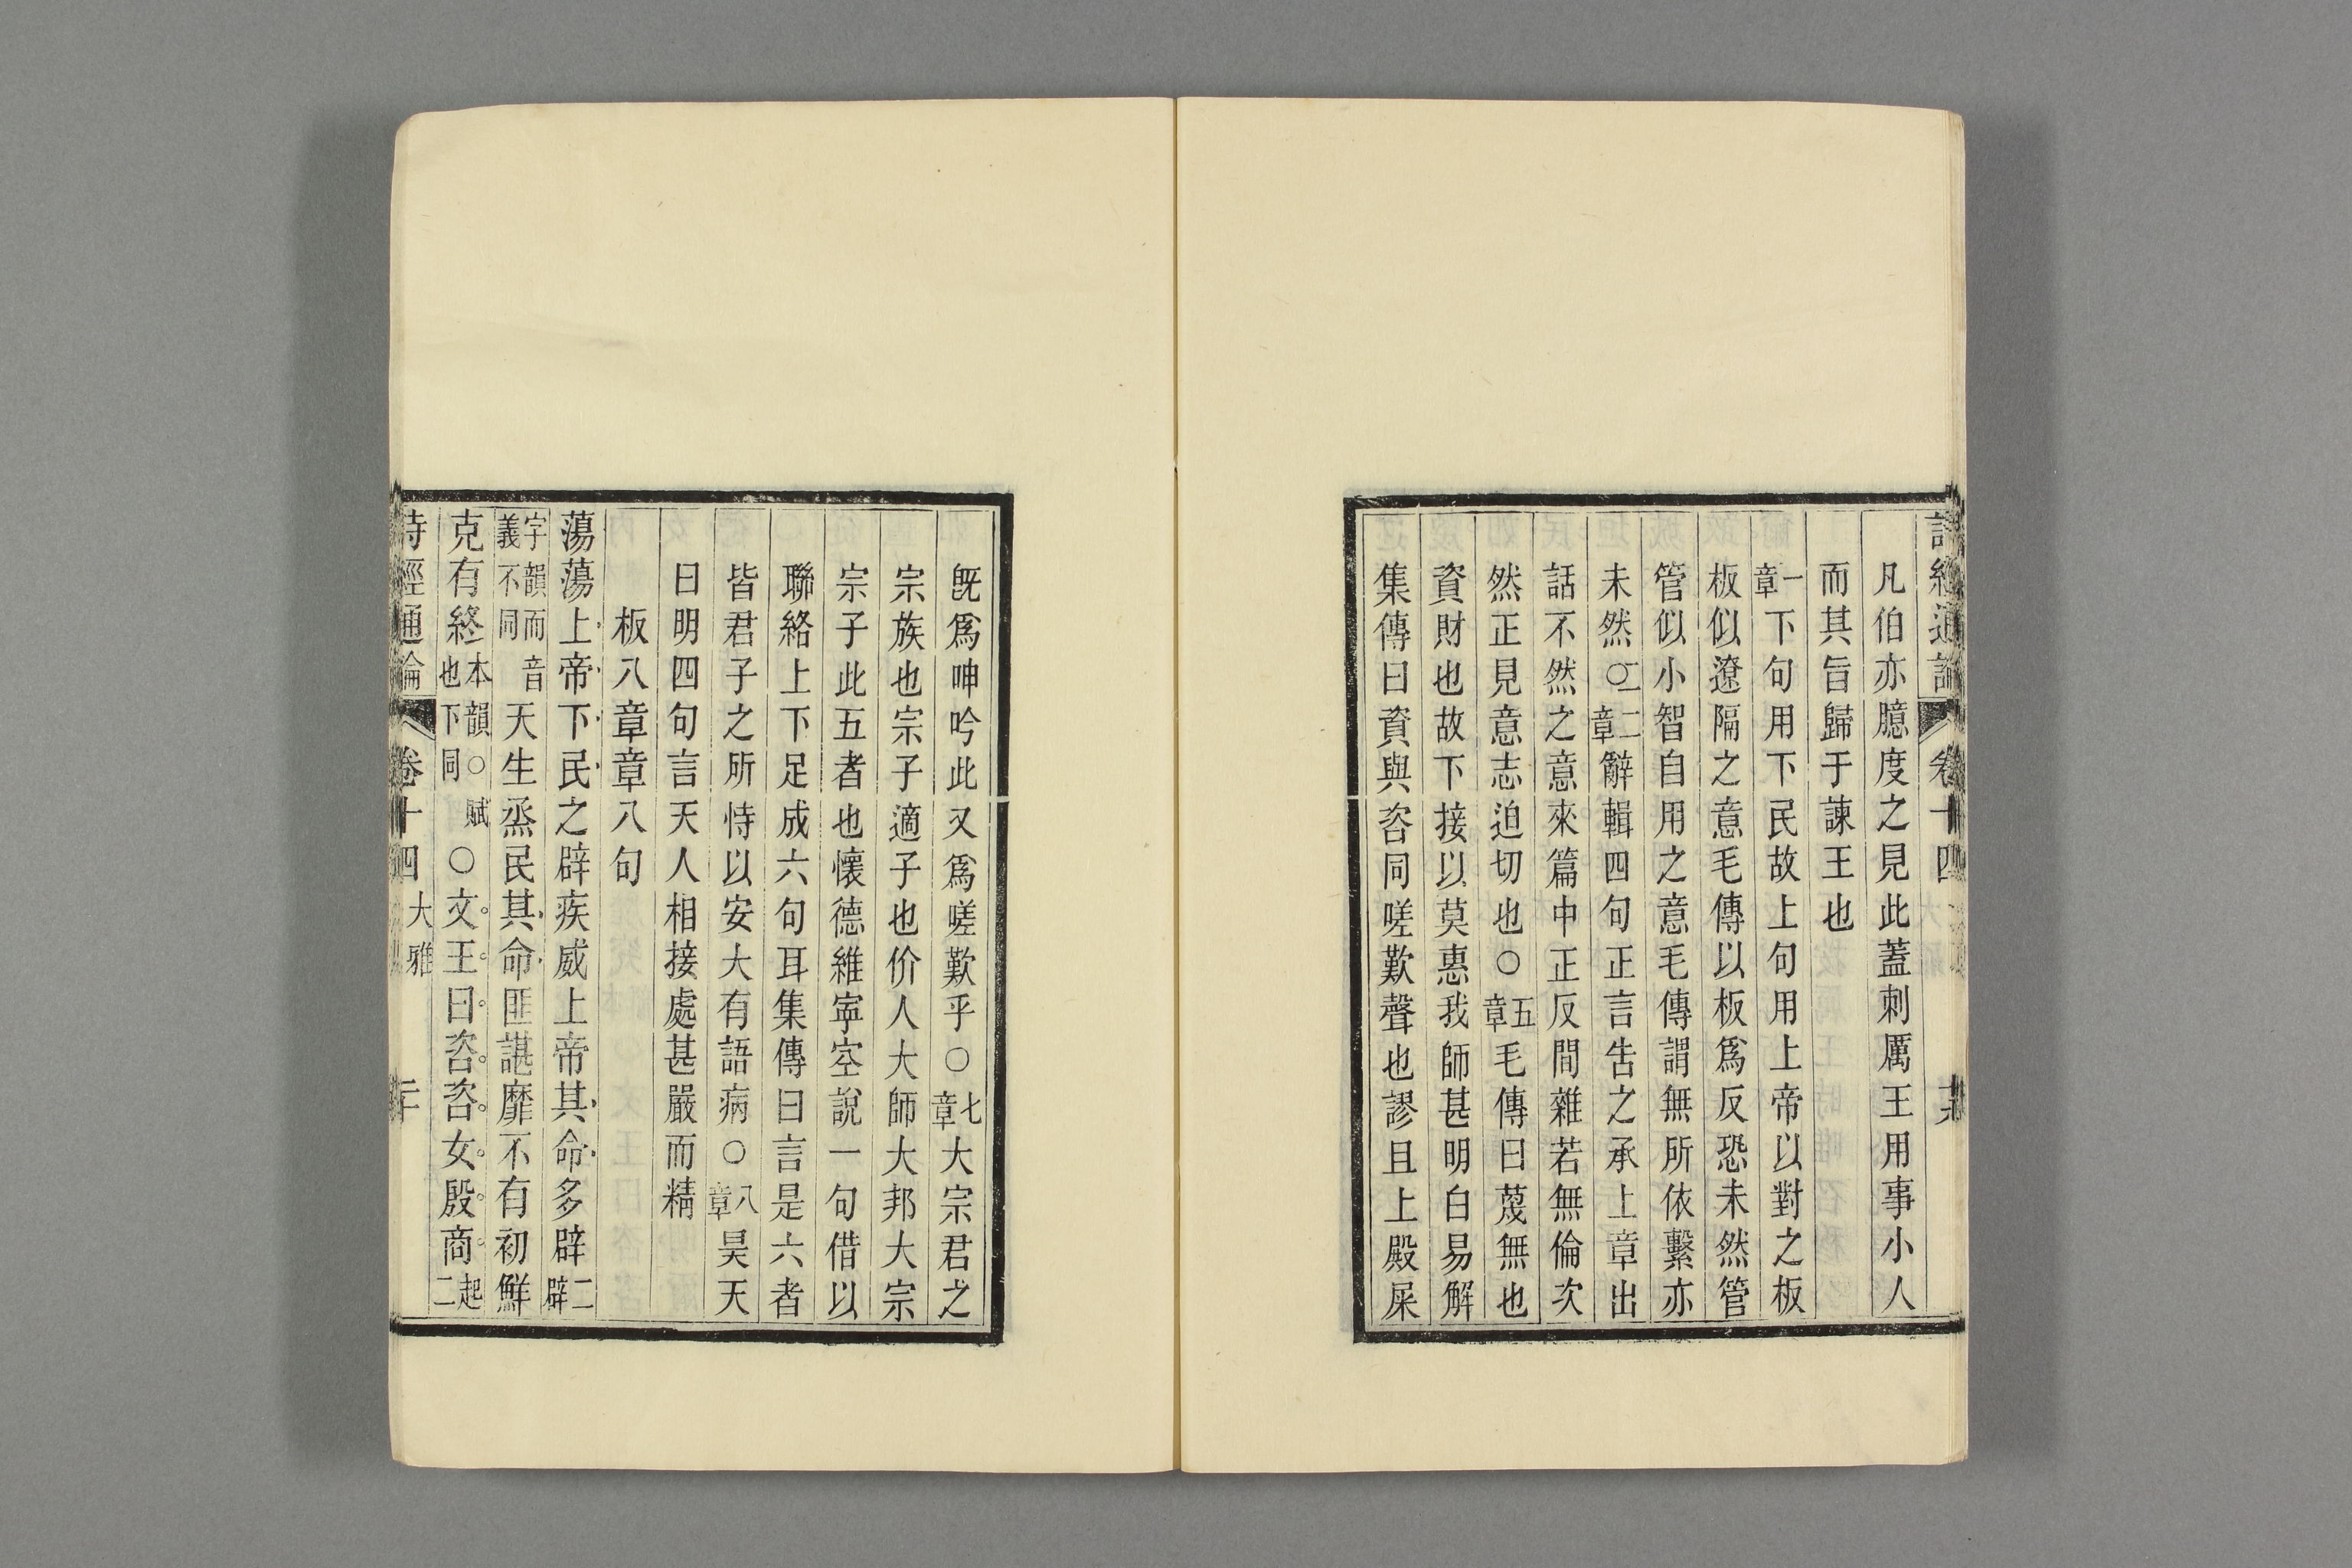 詩經通論 卷十四 十九
凡伯亦臆度之見此蓋刺厲王用事小人
而其旨歸于諫王也
一章下句用下民故上句用上帝以對之板
板似遼隔之意毛傳以板爲反恐未然管
管似小智自用之意毛傳謂無所依繫亦
未然○二章辭輯四句正言告之承上章出
話不然之意來篇中正反間雜若無倫次
然正見意志迫切也○五章毛傳曰蔑無也
資財也故下接以莫惠我師甚明白易解
集傳曰資與咨同嗟歎聲也謬且上殿屎
旣爲呻吟此又爲嗟歎乎○七章大宗君之
宗族也宗子適子也价人大師大邦大宗
宗子此五者也懷德維寧空說一句借以
聯絡上下足成六句耳集傳曰言是六者
皆君子之所恃以安大有語病○八章昊天
曰明四句言天人相接處甚嚴而精
板八章章八句
蕩蕩上帝下民之辟疾威上帝其命多辟二辟
字韻而音義不同天生烝民其命匪諶靡不有初鮮
克有終本韻○賦也下同○文王曰咨咨女殷商起二
詩經通論 卷十四 大雅 二十